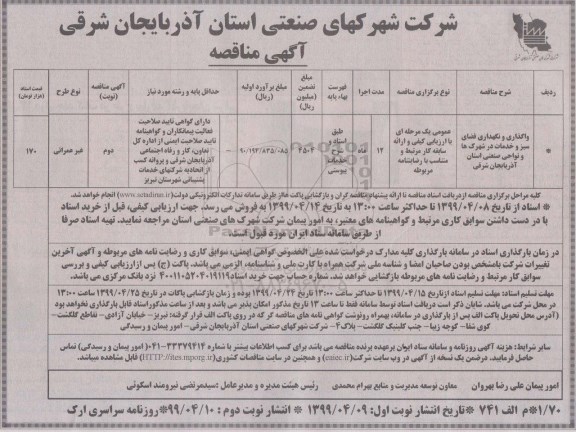 شرکت شهرکهای صنعتی استان آذربایجان شرقی
آگهی مناقصه
ردیف
شرح مناقصه
نوع برگزاری مناقصه
مدت اجرا
فهرست بهاء پایه
مبلغ تضمین (میلیون ریال)
مبلغ برآورد اولیه (ریال)
حداقل پایه و رشته مورد نیاز
آگهی مناقصه (نوبت)
نوع طرح
قیمت اسناد (هزار تومان)
واگذاری و نگهداری فضای سبز و خدمات در شهرک ها و نواحی صنعتی استان آذربایجان شرقی
عمومی یک مرحله ای با ارزیابی کیفی و ارائه سابقه کار مرتبط و متناسب با رضایتنامه مربوطه
۱۲
طبق اسناد و شرح خدمات پیوستی
۴۵۰۴
۹۰/۱۹۲/۸۳۵/۰۸۵
دارای گواهی تایید صلاحیت فعالیت پیمانکاران و گواهینامه تایید صلاحیت ایمنی از اداره کل تعاون، کار و رفاه اجتماعی آذربایجان شرقی و پروانه کسب از اتحادیه شرکتهای خدمات پشتیبانی شهرستان تبریز
دوم
غیر عمرانی
۱۷۰
کلیه مراحل برگزاری مناقصه ازدریافت اسناد مناقصه تا ارائه پیشنهادمناقصه گران و بازگشایی پاکت ها،از طریق سامانه تدارکات الکترونیکی دولت( www.setadiran.ir) انجام خواهد شد.
* اسناد از تاریخ ۱۳۹۹/۰۴/۰۸ تا حداکثر ساعت ۱۳:۰۰ به تاریخ ۱۳۹۹/۰۴/۱۴ به فروش می رسد. جهت ارزیابی کیفی، قبل از خرید اسناد
با در دست داشتن سوابق کاری مرتبط و گواهینامه های معتبر، به امور پیمان شرکت شهرک های صنعتی استان مراجعه نمایید. تهیه اسناد صرفا
از طریق سامانه ستاد ایران مورد قبول است.
در زمان بارگذاری اسناد در سامانه بارگذاری کلیه مدارک درخواست شده علی الخصوص گواهی ایمنی، سوابق کاری و رضایت نامه های مربوطه و آگهی آخرین
تغییرات شرکت بامشخص بودن صاحبان امضا و شناسه ملی شرکت همراه با کارت ملی و شناسنامه، الزامی می باشد. پاکت (ج) پس ازارزیابی کیفی و بررسی
سوابق کار مرتبط و رضایت نامه های مربوطه بازگشایی خواهد شد. شماره حساب جهت خرید اسناد ۴۰۰۱۱۰۵۲۰۴۰۱۹۱۱۹ نزد بانک مرکزی می باشد.
مهلت تسلیم اسناد: مهلت تسلیم اسناد ازتاریخ ۱۳۹۹/۰۴/۱۵ تا حداکثر ساعت ۱۳:۰۰ مورخه ۱۳۹۹/۰۴/۲۴ بوده و زمان بازگشایی پاکات در تاریخ ۱۳۹۹/۰۴/۲۵ ساعت ۱۳:۰۰
در محل شرکت می باشد. شایان ذکر است دریافت اسناد توسط سامانه فقط تا ساعت ۱۳ تاریخ مذکور امکان پذیر می باشد و بعد از ساعت مذکورامکان اسناد قابل بارگذاری نخواهد بود
(آدرس محل تحویل پاکت الف پس از بارگذاری در سامانه، بهمراه رونوشت گواهی نامه های مناقصه گر که در روی پاکت الف قرار گرفته: تبریز - خیابان آزادی- تقاطع گلگشت-
کوی شفا- کوچه زیبا- جنب کلینیک گلگشت- پلاک۴- شرکت شهرکهای صنعتی استان آذربایجان شرقی- امور پیمان و رسیدگی
سایر شرایط: هزینه آگهی روزنامه و سامانه ستاد ایران برعهده برنده مناقصه می باشد برای کسب اطلاعات بیشتر با شماره ۳۳۳۷۹۲۱۴-۰۴۱ (امور پیمان و رسیدگی) تماس
حاصل فرمایید. درضمن یک نسخه از آگهی در وب سایت شرکت( eaiec.ir) و همچنین در سایت مناقصات کشوری(HTTP://iets.mporg.ir) قابل مشاهده میباشد.
امور پیمان علی رضا بهروان
معاون توسعه مدیریت و منابع بهرام محمدی
رئیس هیئت مدیره و مدیرعامل :سیدمرتضی نیرومند اسکوئی
۱/۷۰* م الف ۷۴۱ *تاریخ انتشار نوبت اول: ۱۳۹۹/۰۴/۰۹ * انتشار نوبت دوم : ۹۹/۰۴/۱۰ *روزنامه سراسری ارک